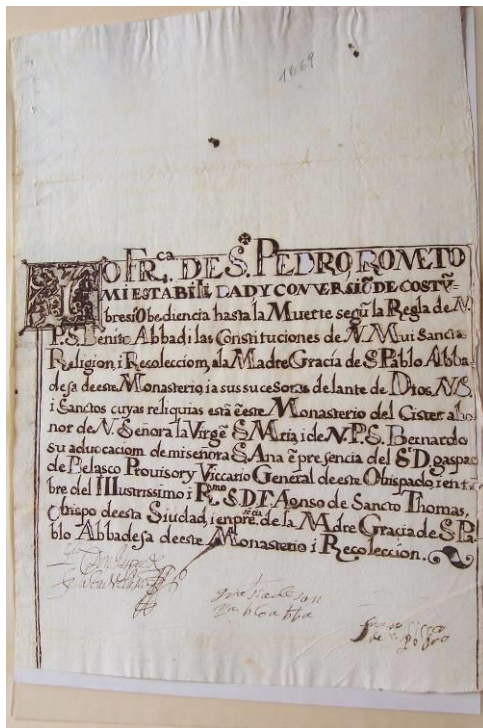 1669
IO FR.ca DE S. PEDRO, ROMETO
MI ESTABILIDAD Y CONVERSIŌ DE COSTŪ-
bres i Obediencia hasta la Muerte segū la Regla de N.
P. S. Benito Abbad i las Constituciones de N. Mui Sancta
Religion, i Recoleccion, a la Madre Gracia de S. Pablo Abba-
desa deeste Monasterio, i a sus sucesoras delante de Dios N.S.
i Sanctos cuyas reliquias estā ē este Monasterio del Cister a ho-
nor de N. Señora la Virgē S. Mria, i de N. P. S. Bernardo
su aduocacion de mi señora S. Ana ē presencia del S.r D gaspar
de Belasco Prouisor y Viccario General de este Obispado, i en nō
bre del Illustrissimo i R.mo S. D. F. Alonso de Sancto Thomas,
Obispo deesta Siudad, i en pre.sēcia de la Madre Gracia de S. Pa-
blo Abbadesa de este Monasterio i Recoleccion.
gracia de san
pablo abba